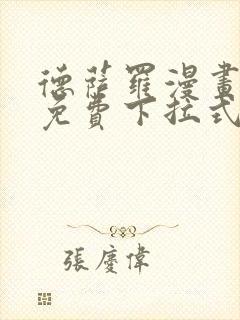 德薩羅漫畫
免費下拉式
張慶偉